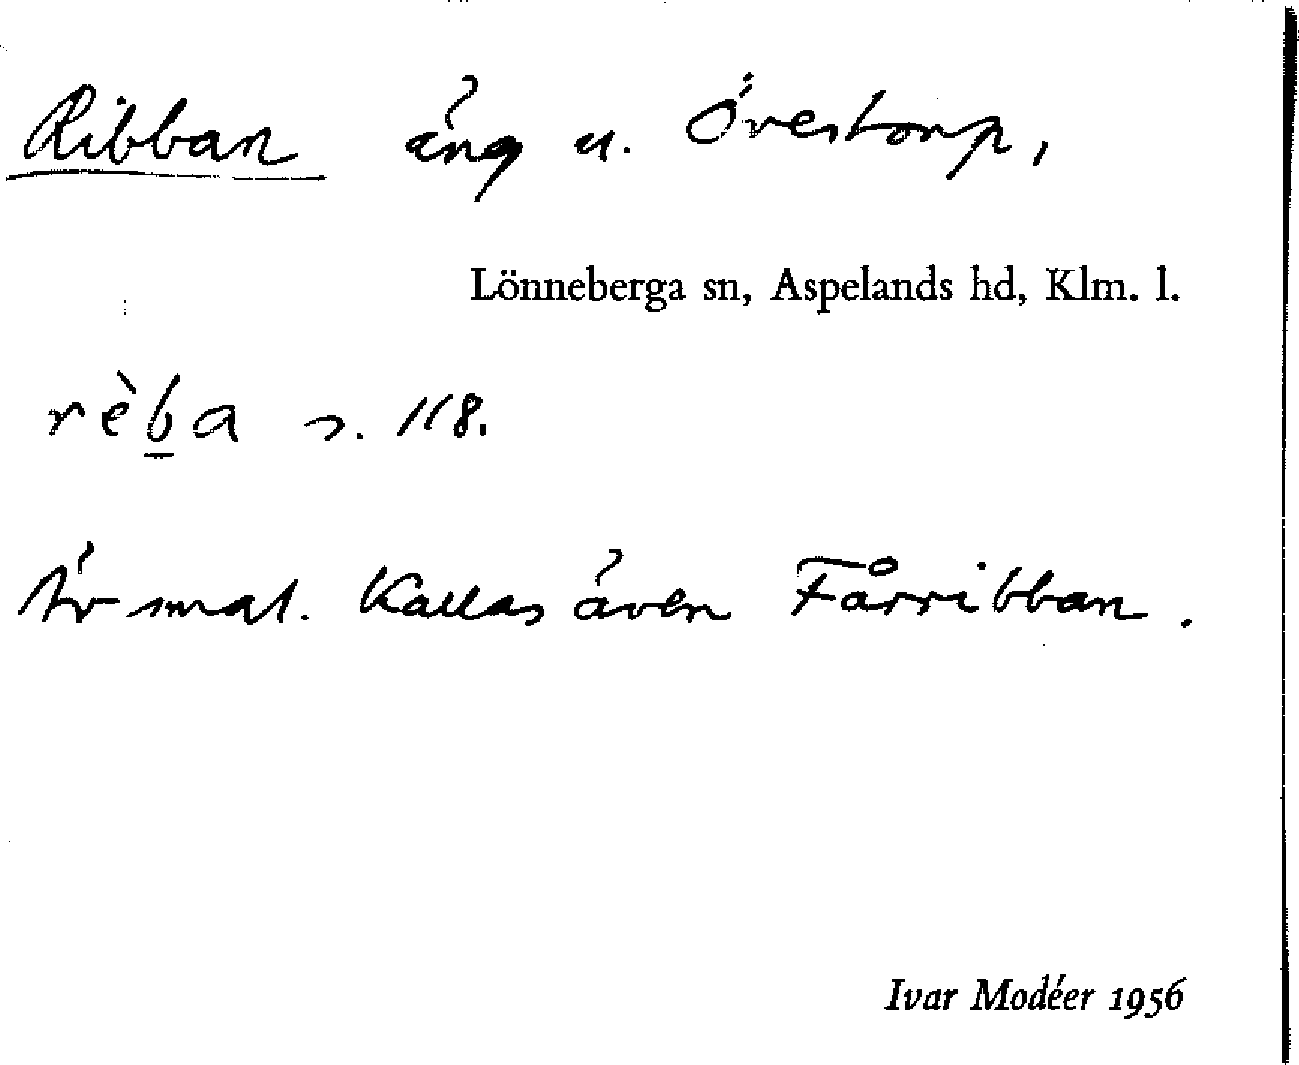 Ribban äng u. Övestorp,
Lönneberga sn, Aspelands hd, Klm. l.
rèb̲a s. 118.
Är smal. Kallas även Fårribban.
Ivar Modéer 1956